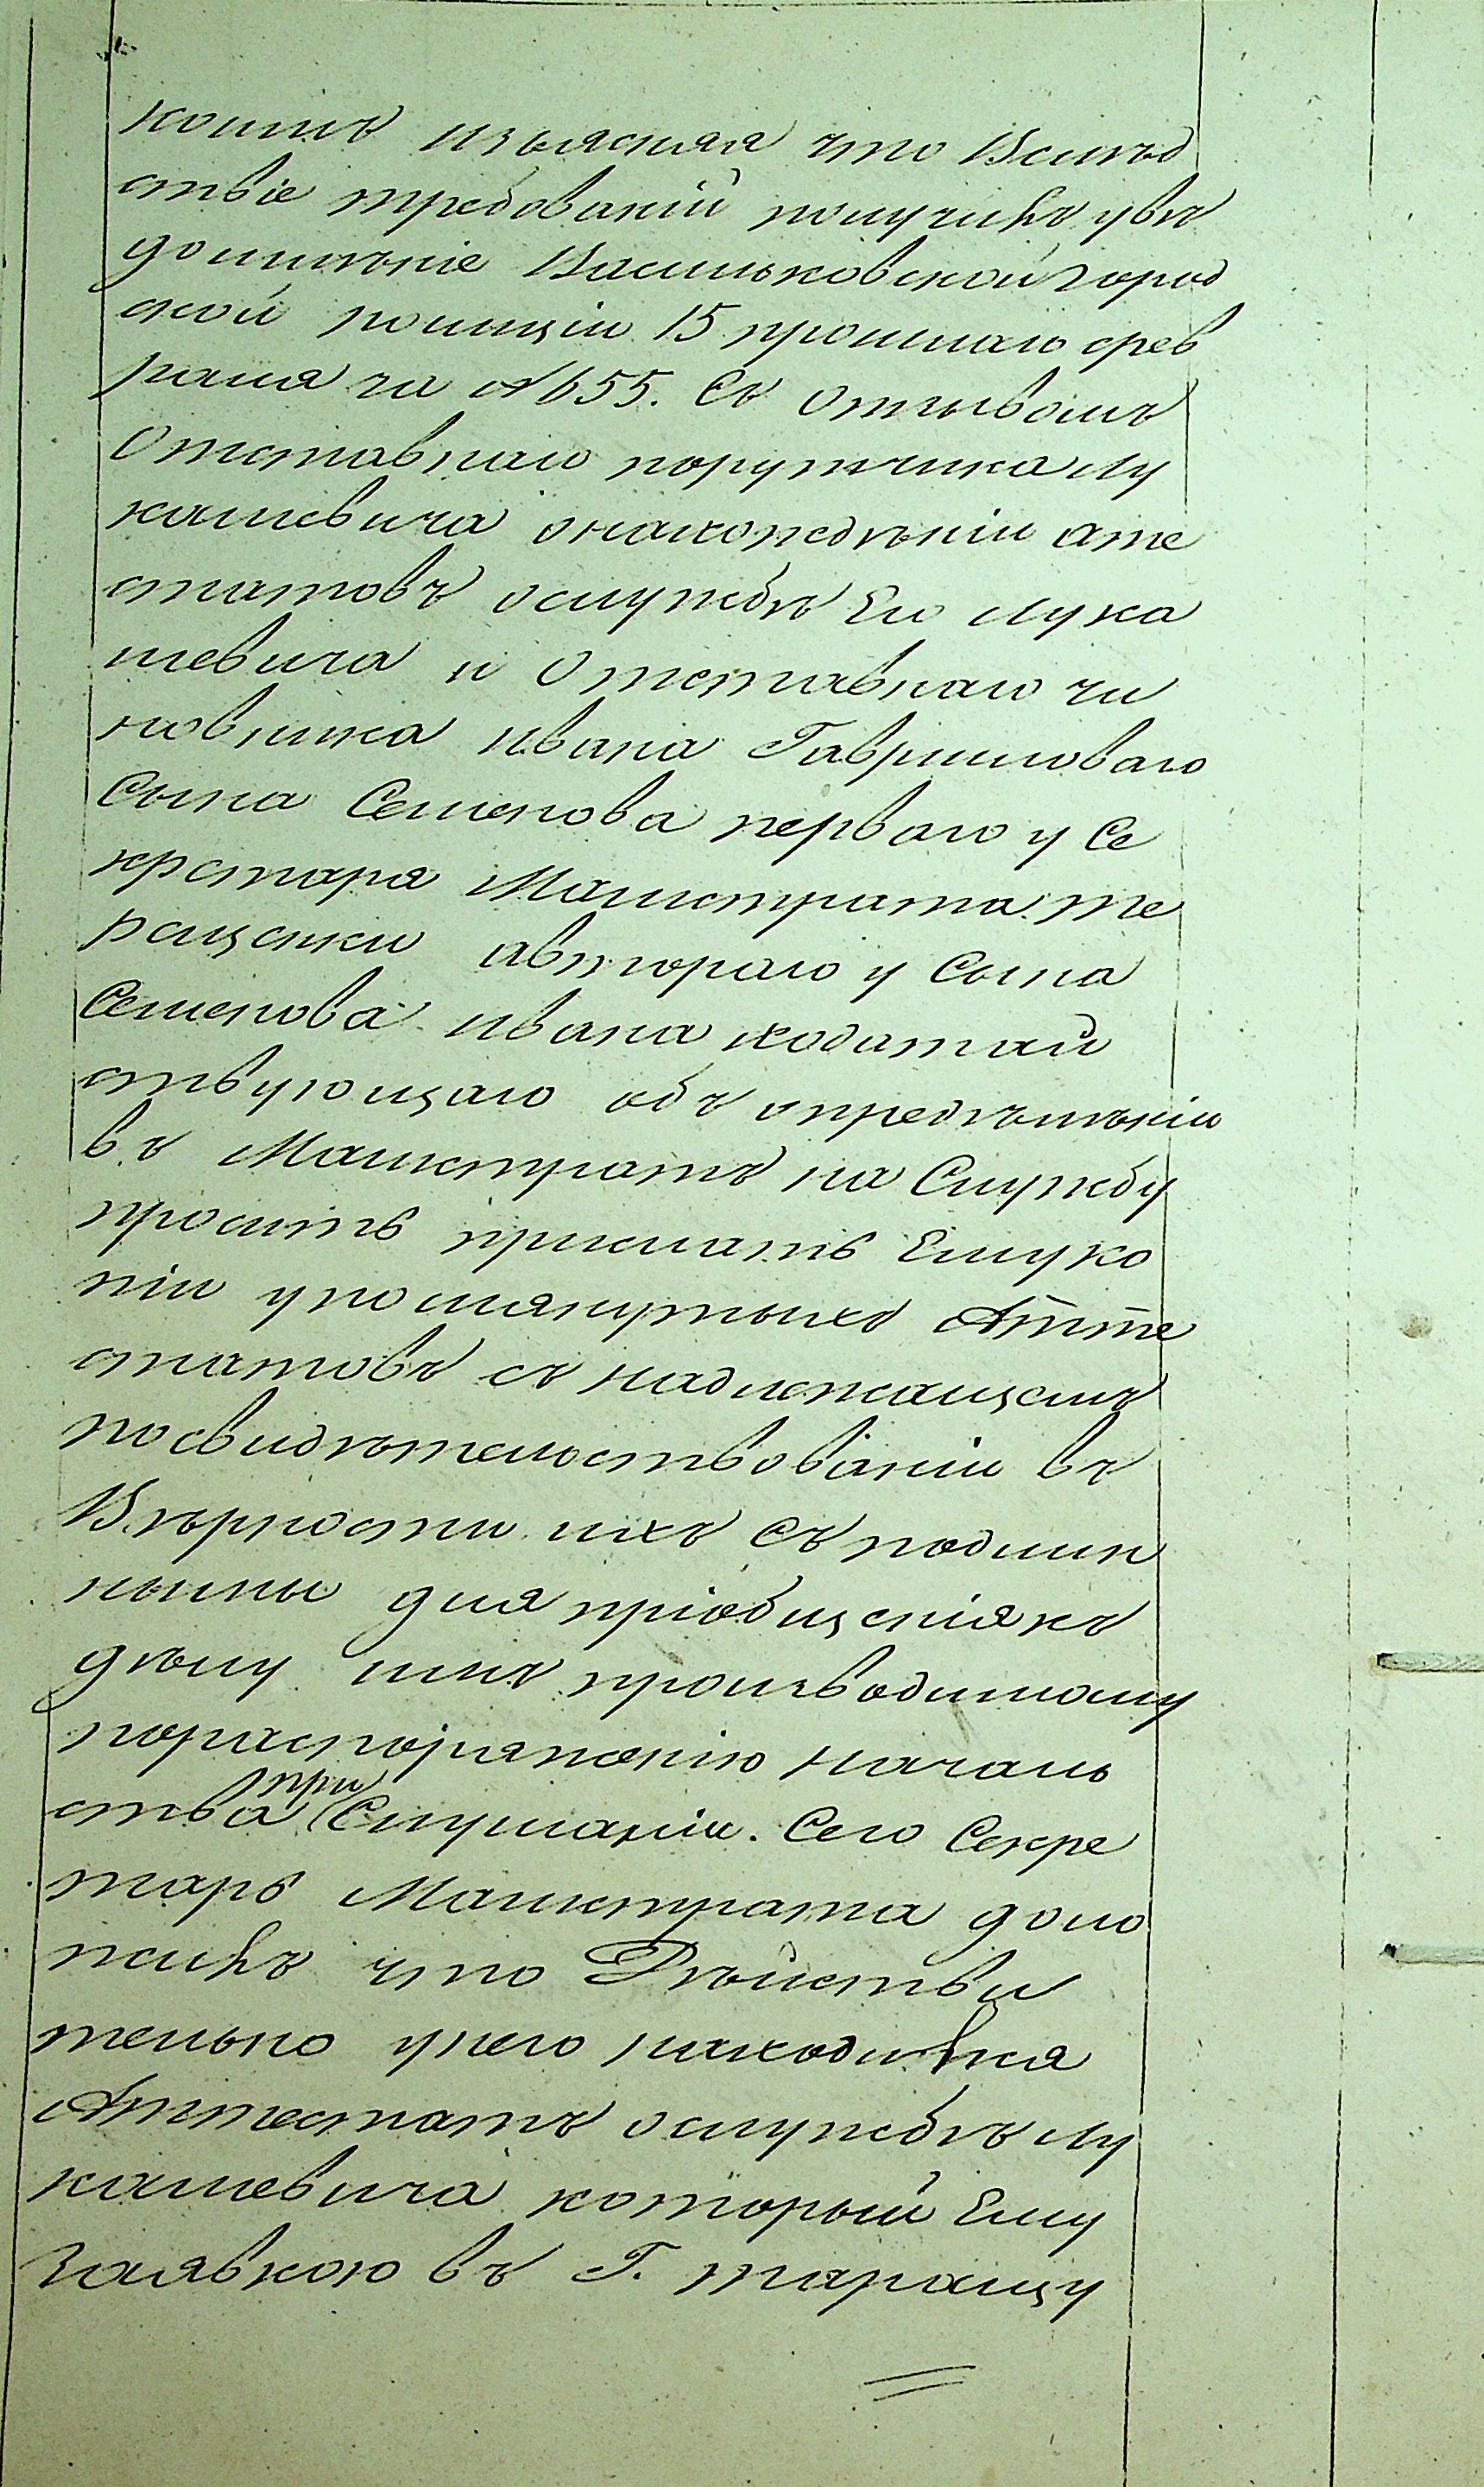 коимъ изъясняя что Вслѣд
ствіе требованій получилъ увѣ
домленіе Васильковской город
ской полиціи 15 прошлаго фев
раля за №655. Съ отзывомъ
Отставнаго порутчика Лу
кашевича онахожденіи ате
статовъ ослужбѣ Его Лука
шевича и Отставнаго чи
новника Ивана Гавриловаго
Сына Семенова перваго у Се
кретаря Магистрата Те
рещенки автораго у Сына
Семенова Ивана ходатай
ствующаго объ опредѣленіи
въ Магистратъ на Службу
проситъ прислать Ему ко
піи упомянутыхъ Атте
статовъ съ надлежащемъ
посвидѣтельствованіи въ
Вѣрности ихъ Съ подлин
ными для пріобщеніякъ
дѣлу имъ производимому
пораспоряженію началь
ства при Слушаніи. Сего Секре
тарь Магистрата доло
жилъ что Дѣйстви
тельно унего находился
Аттестатъ ослужбѣ Лу
кашевича который Ему
Заявкою въ Г. Таращу